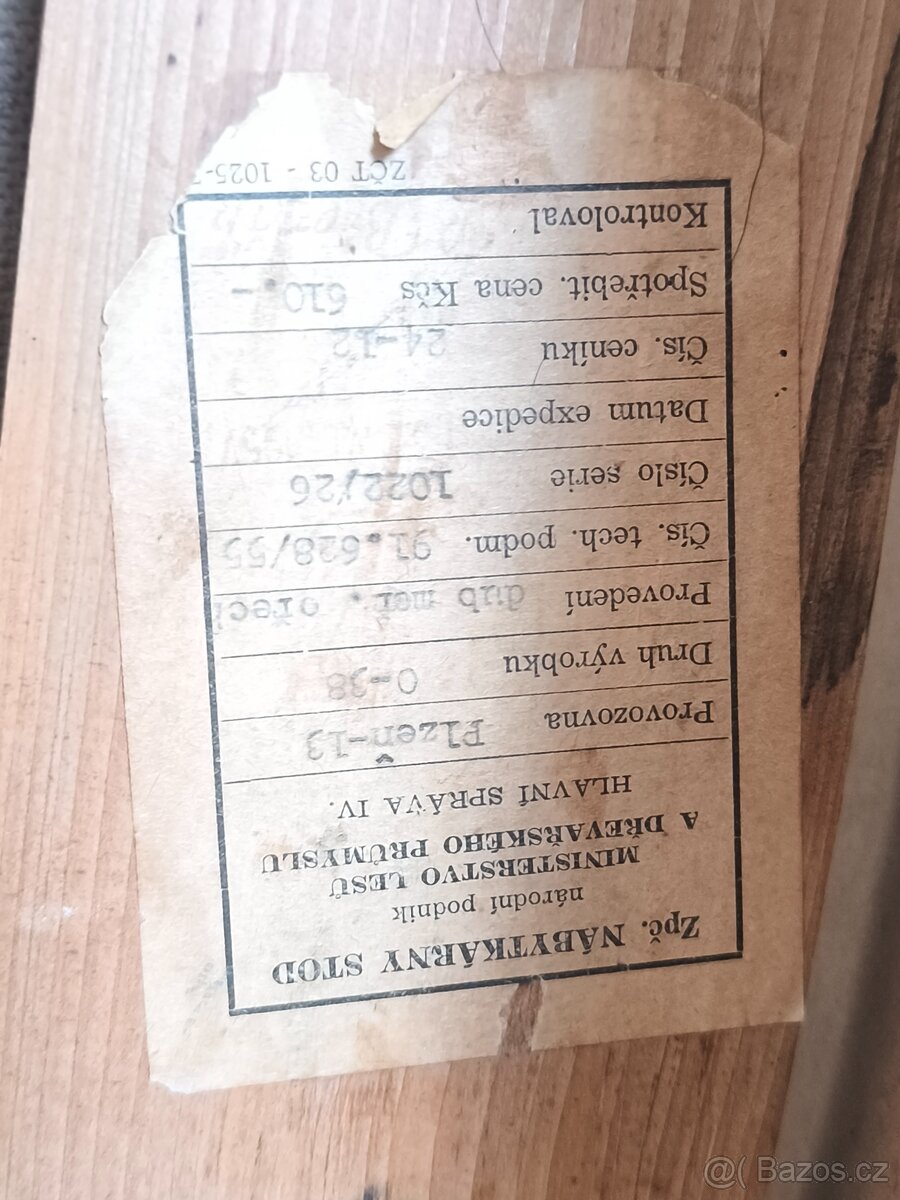 Zpč. NÁBYTKÁRNY STOD
národní podnik
MINISTERSTVO LESŮ
A DŘEVAŘSKÉHO PRŮMYSLU
HLAVNÍ SPRÁVA IV.
Provozovna Plzeň-13
Druh výrobku 0-38
Provedení dub moř. ořech
Čís. tech. podm. 91.628/55
Číslo serie 1022/26
Datum expedice
Čís. ceníku 24-12
Spotřebit. cena Kčs 610.-
Kontroloval
ZČT 03 - 1025-
@( Bazos.cz